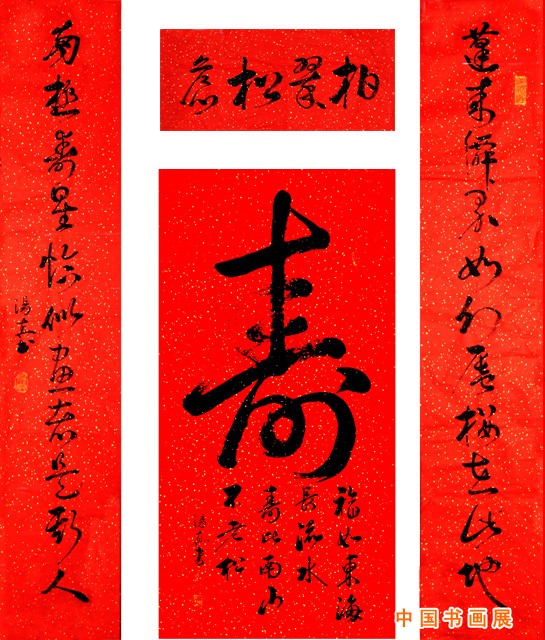 苍松翠柏
蓬莱如幻蜃楼在此地
壽
福如東海
長流水
壽比南山
不老松
南極壽星恰似畫是斯人
中国书画展